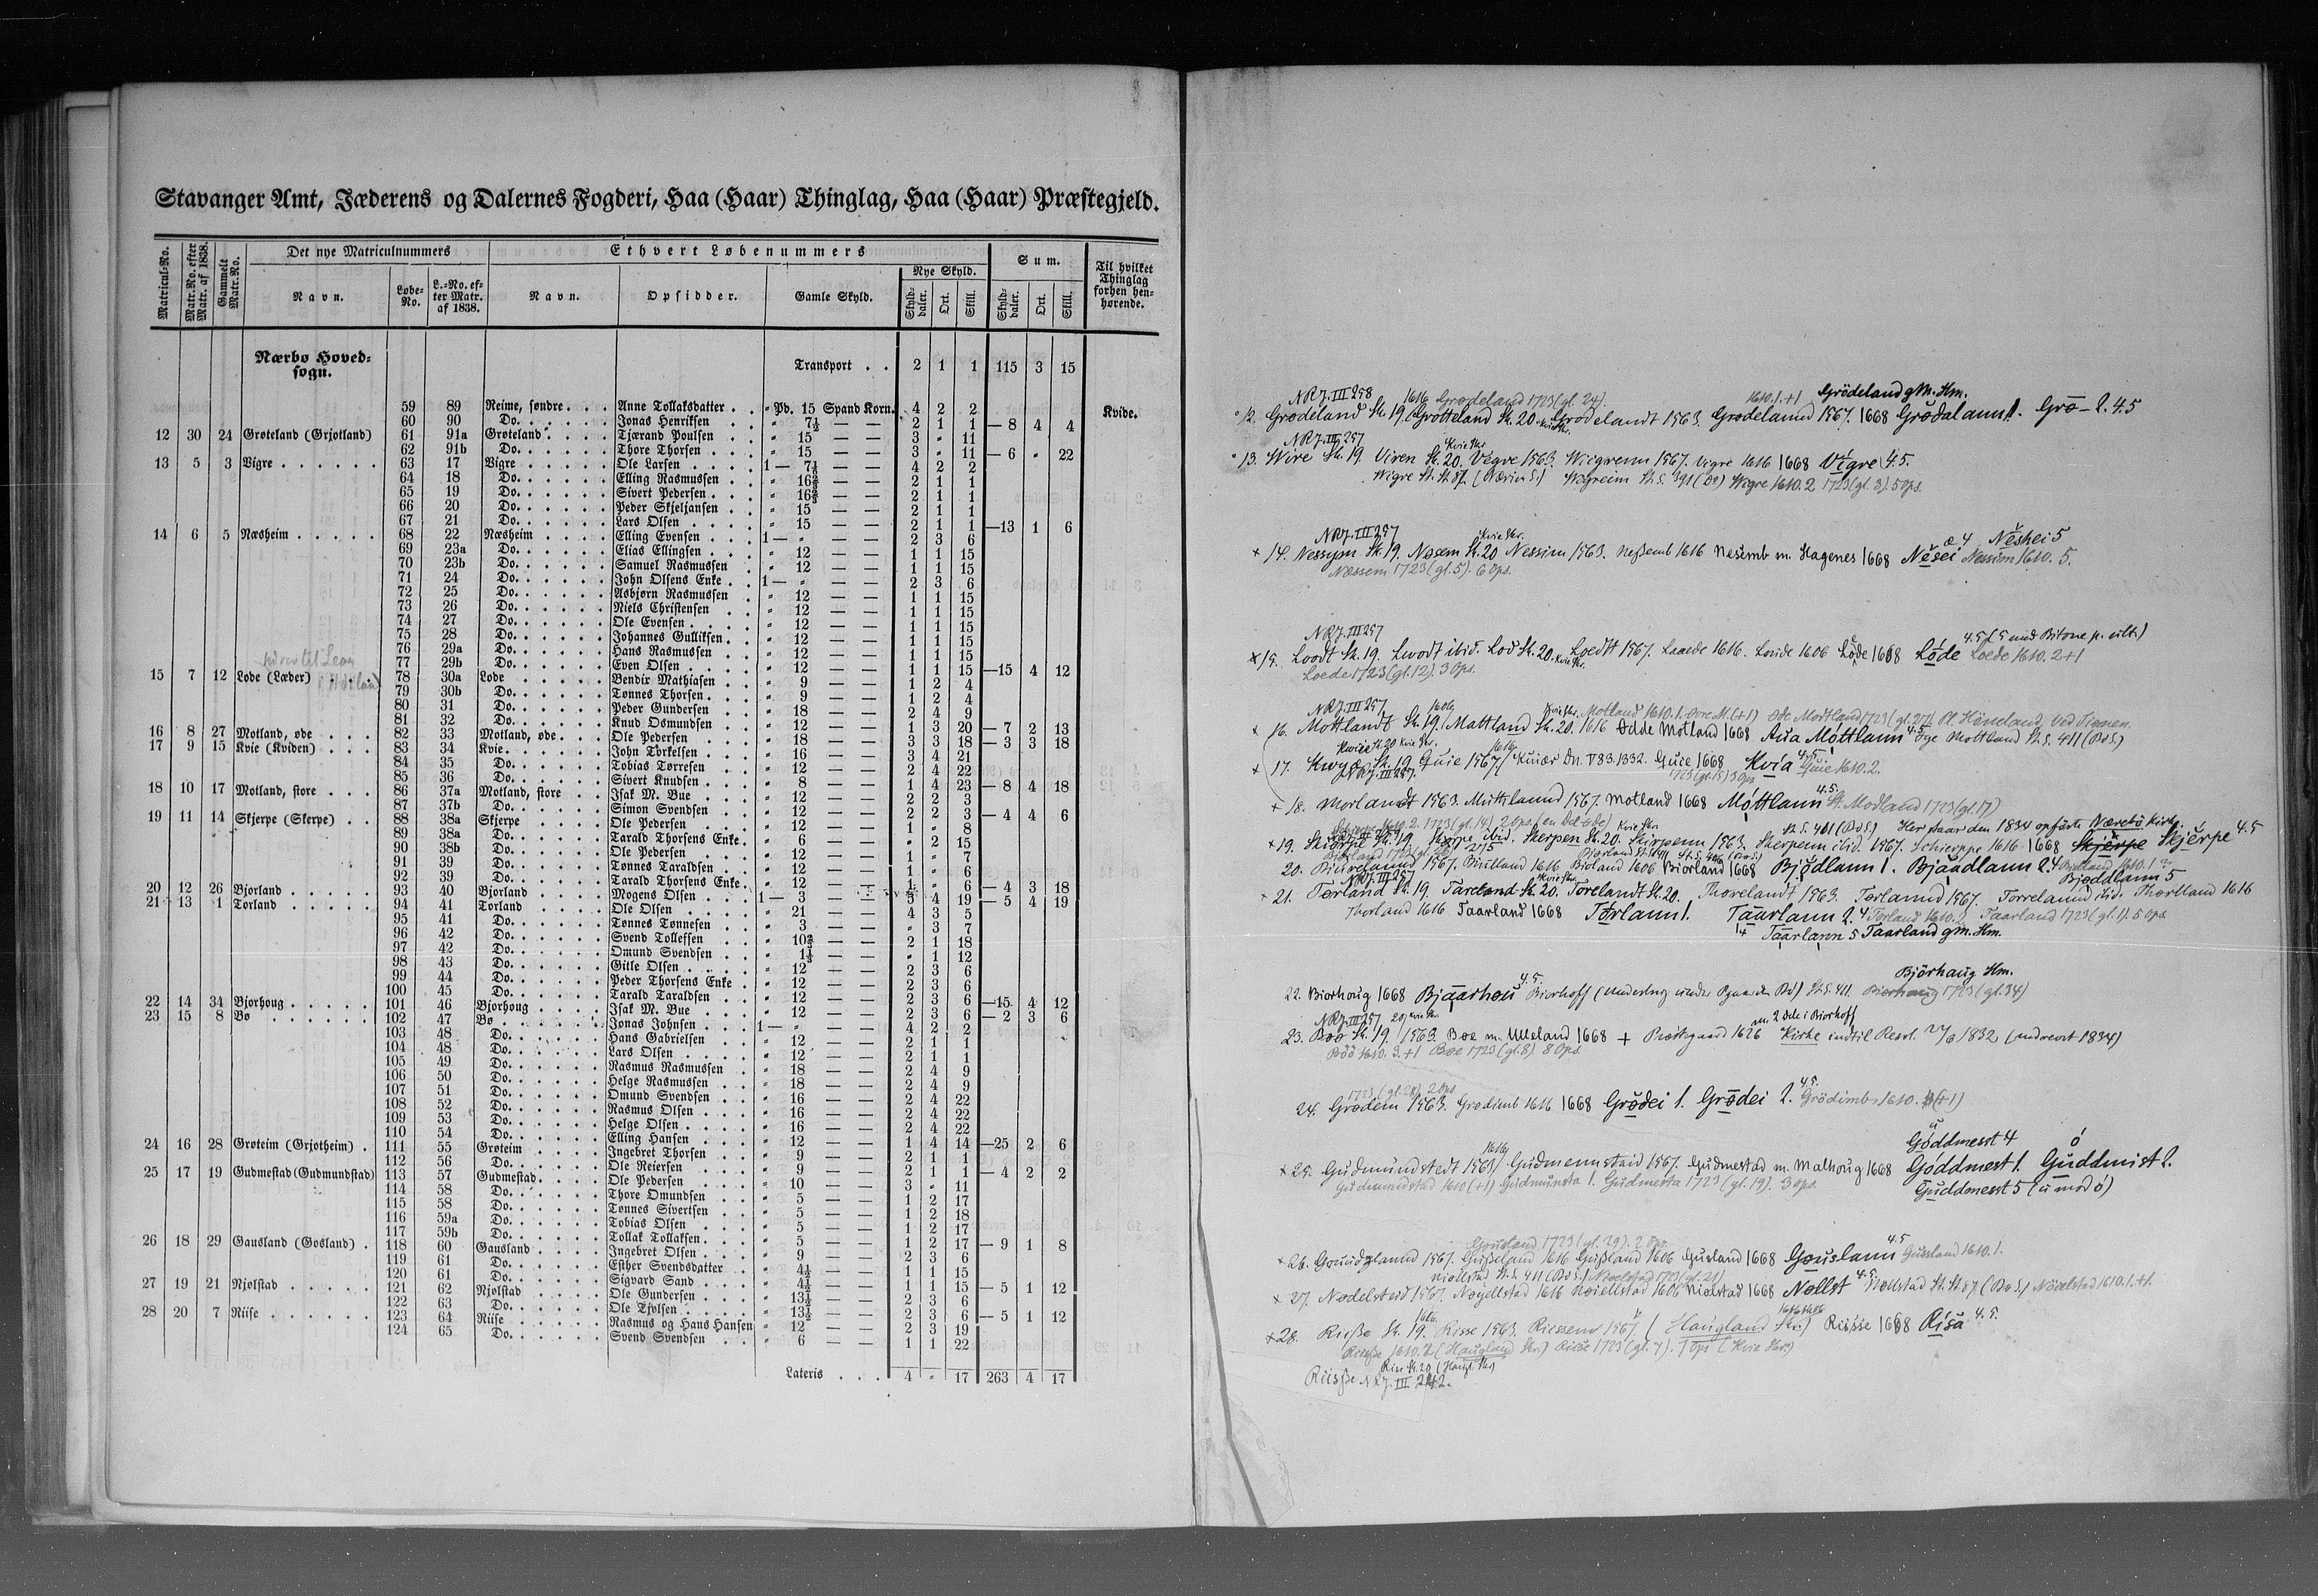 Stavanger Amt, Jæderens og Dalernes Fogderi, Haa (Haar) Thinglag, Haa (Haar) Præstegjeld.
Matricul-No. Matr.No. efter Matr. af 1838. Gammelt Matr.No. Det nye Matriculnummers Ethvert Løbenummers Sum. Til hvilket Thinglag forhen henhørende.
Navn. Løbe-No. L.-No. efter Matr. af 1838. Navn. Opsidder. Gamle Skyld. Nye Skyld. Skylddaler. Ort. Skill. Skylddaler. Ort. Skill.
Nærbø Hovedsogn. Transport . . 2 1 1 115 3 15
59 89 Reime, søndre . . . Anne Tollaksdatter . . " Pd. 15 Spand Korn. 4 2 2 Kvide.
60 90 Do. . . . . . Jonas Henriksen . . " 7½ — — 2 1 1 — 8 4 4
12 30 24 Grøteland (Grjotland) 61 91a Grøteland . . . . Tjærand Poulsen . . " 15 — — 3 " 11
62 91b Do. . . . . . Thore Thorsen . . . " 15 — — 3 " 11 — 6 " 22
13 5 3 Vigre . . . . . . 63 17 Vigre . . . . . Ole Larsen . . . . 1 — 7½ — — 4 2 2
64 18 Do. . . . . . Elling Rasmussen . . " 16⅔ — — 2 1 1
65 19 Do. . . . . . Sivert Pedersen . . . " 16⅔ — — 2 1 1
66 20 Do. . . . . . Peder Skjeljansen . . " 15 — — 2 1 1
67 21 Do. . . . . . Lars Olsen . . . . " 15 — — 2 1 1 —13 1 6
14 6 5 Næsheim . . . . . 68 22 Næsheim . . . . Elling Evensen . . . 1 — " — — 2 3 6
69 23a Do. . . . . . Elias Ellingsen . . . " 12 — — 1 1 15
70 23b Do. . . . . . Samuel Rasmussen . " 12 — — 1 1 15
71 24 Do. . . . . . John Olsens Enke . . 1 — " — — 2 3 6
72 25 Do. . . . . . Asbjørn Rasmussen . " 12 — — 1 1 15
73 26 Do. . . . . . Niels Christensen . . " 12 — — 1 1 15
74 27 Do. . . . . . Ole Evensen . . . . " 12 — — 1 1 15
75 28 Do. . . . . . Johannes Gulliksen . . " 12 — — 1 1 15
76 29a Do. . . . . . Hans Rasmussen . . " 12 — — 1 1 15
77 29b Do. . . . . . Even Olsen . . . . " 12 — — 1 1 15 —15 4 12
15 7 12 Løde (Læder) . . . 78 30a Løde . . . . . Bendix Mathiasen . . " 9 — — 1 2 4
79 30b Do. . . . . . Tønnes Thorsen . . . " 9 — — 1 2 4
80 31 Do. . . . . . Peder Gundersen . . " 18 — — 2 4 9
81 32 Do. . . . . . Knud Osmundsen . . " 12 — — 1 3 20 — 7 2 13
16 8 27 Motland, øde . . . 82 33 Motland, øde . . . Ole Pedersen . . . " 18 — — 3 3 18 — 3 3 18
17 9 15 Kvie (Kviden) . . . 83 34 Kvie . . . . . John Torkelsen . . . " 16 — — 3 4 21
84 35 Do. . . . . . Tobias Torresen . . " 12 — — 2 4 22
85 36 Do. . . . . . Sivert Knudsen . . . " 8 — — 1 4 23 — 8 4 18
18 10 17 Motland, store . . . 86 37a Motland, store . . Isak M. Bue . . . " 12 — — 2 2 3
87 37b Do. . . . . . Simon Svendsen . . " 12 — — 2 2 3 — 4 4 6
19 11 14 Skjerpe (Skerpe) . . 88 38a Skjerpe . . . . Ole Pedersen . . . " 12 — — 1 " 8
89 38a Do. . . . . . Tarald Thorsens Enke . " 6 — — " 2 15
90 38b Do. . . . . . Ole Pedersen . . . " 12 — — 1 " 7
91 39 Do. . . . . . Tønnes Taraldsen . . " 12 — — 1 " 6
92 39 Do. . . . . . Tarald Thorsens Enke . " 12 — — 1 " 6 — 4 3 18
20 12 26 Bjorland . . . . . 93 40 Bjorland . . . . Mogens Olsen . . . 1 — 3 — — 5 4 19 — 5 4 19
21 13 1 Torland . . . . . 94 41 Torland . . . . Ole Olsen . . . . " 21 — — 4 3 5
95 41 Do. . . . . . Tønnes Tønnesen . . " 3 — — " 3 7
96 42 Do. . . . . . Svend Tollefsen . . " 10⅔ — — 2 1 18
97 42 Do. . . . . . Omund Svendsen . . " 1⅓ — — " 1 12
98 43 Do. . . . . . Gitle Olsen . . . . " 12 — — 2 3 6
99 44 Do. . . . . . Peder Thorsens Enke . " 12 — — 2 3 6
100 45 Do. . . . . . Tarald Taraldsen . . " 12 — — 2 3 6 —15 4 12
22 14 34 Bjorhoug . . . . . 101 46 Bjorhoug . . . . Isak M. Bue . . . " 12 — — 2 3 6 — 2 3 6
23 15 8 Bø . . . . . . 102 47 Bø . . . . . . Jonas Johnsen . . . 1 — " — — 4 2 2
103 48 Do. . . . . . Hans Gabrielsen . . " 12 — — 2 1 1
104 48 Do. . . . . . Lars Olsen . . . . " 12 — — 2 1 1
105 49 Do. . . . . . Rasmus Rasmussen . " 18 — — 2 4 9
106 50 Do. . . . . . Helge Rasmussen . . " 18 — — 2 4 9
107 51 Do. . . . . . Omund Svendsen . . " 16 — — 2 4 22
108 52 Do. . . . . . Rasmus Olsen . . . " 16 — — 2 4 22
109 53 Do. . . . . . Helge Olsen . . . . " 16 — — 2 4 22
110 54 Do. . . . . . Elling Hansen . . . " 12 — — 1 4 14 —25 2 6
24 16 28 Grøteim (Grjotheim) . 111 55 Grøteim . . . . Ingebret Thorsen . . " 9 — — 2 1 1
112 56 Do. . . . . . Ole Reiersen . . . " 9 — — 2 1 1 — 4 2 2
25 17 19 Gudmestad (Gudmundstad) 113 57 Gudmestad . . . . Ole Pedersen . . . " 10 — — 3 " 11
114 58 Do. . . . . . Thore Omundsen . . " 5 — — 1 2 17
115 58 Do. . . . . . Tønnes Sivertsen . . " 5 — — 1 2 18
116 59a Do. . . . . . Tobias Olsen . . . " 5 — — 1 2 17
117 59b Do. . . . . . Tollak Tollaksen . . . " 5 — — 1 2 17 — 9 1 8
26 18 29 Gausland (Gosland) . 118 60 Gausland . . . . Ingebret Olsen . . . " 9 — — 2 3 6
119 61 Do. . . . . . Esther Svendsdatter . . " 4½ — — 1 1 15
120 61 Do. . . . . . Sigvard Sand . . . " 4½ — — 1 1 15 — 5 1 12
27 19 21 Njølstad . . . . . 121 62 Njølstad . . . . Ole Gundersen . . . " 13½ — — 2 3 6
122 63 Do. . . . . . Ole Tjølsen . . . . " 13½ — — 2 3 6 — 5 1 12
28 20 7 Riise . . . . . . 123 64 Riise . . . . . Rasmus og Hans Hansen " 12 — — 2 3 19
124 65 Do. . . . . . Svend Svendsen . . " 6 — — 1 1 22
Lateris . . . 4 " 17 263 4 17
NRJ. III 258 1616 Grødeland 1723 (gl. 24). 1610.1.+1 Grödeland gM. Hm.
12. Grødeland Sk. 19. Grotteland Sk. 20. Grodelandt 1563. Grødelannd 1567. 1668 Grödalann 1. Grö- 2.4.5
NRJ. III 257 Kvie Skr.
13. Wire Sk. 19. Viren Sk. 20. Vegre 1563. Wiigrenn 1567. Vigre 1616 1668 Vigre 4.5.
Wigre St. St. 87. (Nærim S.) St. S. 391 (Do) Wigre 1610.2 1723 (gl. 3). 5 Ops.
NRJ. III 257 Kvie Skr. æ 4 Neshei 5
14. Nessym Sk. 19. Nesem Sk. 20 Nessim 1563. Neßemb 1616 Nesemb m. Hagenes 1668 Nesei Nessim 1610. 5.
Næssem 1723 (gl. 5). 6 Ops.
NRJ. III 257 4.5
15. Loodt Sk. 19. Lwodt ibid. Lod Sk. 20. Loedtt 1567. Laaede 1616. Loede 1606 Løde 1668 Løde Loede 1610. 2+1
Loede 1723 (gl. 12). 3 Ops.
NRJ. III 257 1606 Motland 1610.1. Øde Modtland 1723 (gl. 27)
16. Mottlandt Sk. 19. Mattland Sk. 20. 1616 Ødde Motland 1668 Aua Mottlann 4.5 Mottland St. S. 411 (Bø S.)
Kwiee St. 20 Kvie Skr. 1616
17. Kwyæ Sk. 19 Quie 1567 Kuiær Dn. V 83. 1332. Quie 1668 Kvia 4.5 Quie 1610.2.
NRJ. III 257. 1723 (gl. 15) 3 Op
18. Morlandt 1563. Muttlannd 1567. Motland 1668 Mottlann 4.5. St. Modland 1723 (gl. 17)
St. S. 411 (Bø S.) Her staar den 1834 opførte Nærebö Kirke.
19. Skierpe Sk. 19 Skerpe ibid. Skerpen Sk. 20. Skirpenn 1563. Skerpenn ibid. 1567. Schierppe 1616 1668 Skjerpe 4.5
20. 1567. Birilland 1616 Bidland 1606 Biorland 1668 Bjödlann 1. Bjaadlann 2.4 Bjoddlann 5
21. Torland Sk. 19. Tareland Sk. 20. Torelandt Sk. 20. Thorelandt 1563. Torlannd 1567. Torrelannd ibid. Thortland 1616
Thorland 1616 Taarland 1668 Torlann 1. Taarlann 2.4 Torland 1610.2. Taarland 1723 (gl. 1). 5 Ops
Taarlann 5 Taarland gM. Hm.
Björhaug Hm.
22. Biorhoug 1668 Bjaarhou 4.5. Biorhoff St. S. 411. Bierhaug 1723 (gl. 34)
NRJ. III 257 20 Kvie Skr. m. 2 Dele i Biorhoff
23. Boo Sk. 19. 1563. Boe m. Ulleland 1668 + Præstgaard 1626 Kirke indtil Resol. 1832 (nedrevet 1834)
Böö 1610. 3.+1 Boe 1723 (gl. 8) 8 Ops.
1723 (gl. 28) 2 Ops
24. Grødem 1563. Grodimb 1616 1668 Grödei 1. Grödei 2. 4.5. Grödimb 1610. (+1)
1616 Göddmesst 4
25. Gudmundstedt 1563 Gudmennstaid 1567. Gudmestad m. Malhoug 1668 Göddmest 1. Guddmist 2.
Gudmundstad 1610 (+1) Gudmunsta 1. Gudmesta 1723 (gl. 19). 3 Ops. Guddmesst 5 (u mod ö)
Gousland 1723 (gl. 29). 2 Ops
26. Goundzlannd 1567. Gußeland 1616 Gußland 1606 Gusland 1668 Gouslann 4.5 Gusland 1610.1.
Niollstad St. S. 411 (Bø S.) 1723 (gl. 21)
27. Nødelsteid 1567. Nøyellstad 1616 Nøiellstad 1606 Niolstad 1668 Nöllst 4.5. Nøllstad St. St. 87 (Bø S.) Nöielstad 1610.1.+1.
1616
28. Rieße Sk. 19. Risse 1563. Riessenn 1567. (Haugland Skr.) Riisse 1668 Risa 4.5.
Riesße 1610.2 (Haugland Skr.) Riise 1723 (gl. 7). 1 Ops (Kvie Skr.)
Rise Sk. 20 (Haugl. Skr)
Riesße NRJ. III 242.